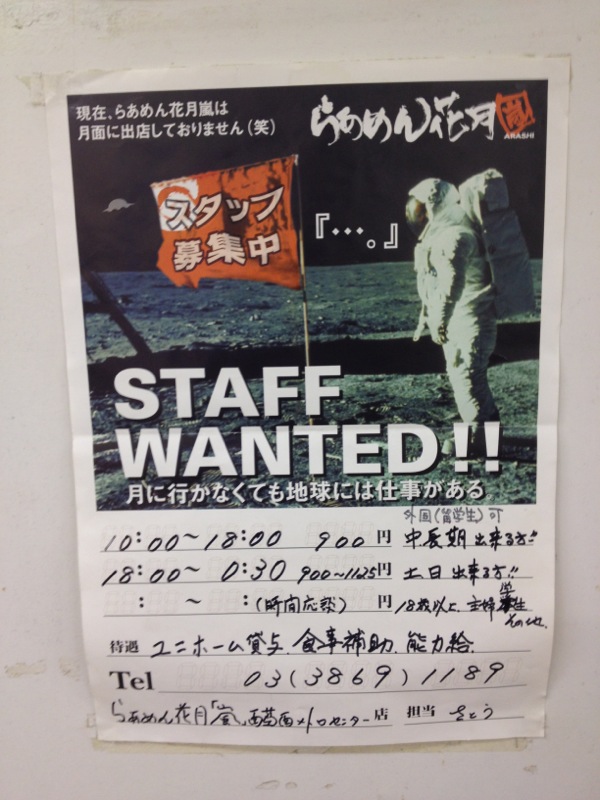 現在、らあめん花月嵐は
月面に出店しておりません(笑)
らあめん花月嵐
ARASHI
スタッフ
募集中
『…。』
STAFF
WANTED!!
月に行かなくても地球には仕事がある
外国(留学生)可
10:00〜18:00 900円 中長期出来る方!!
18:00〜0:30 900〜1125円 土日出来る方!!
: 〜 :(時間応談) 円 18歳以上. 主婦 学生
その他.
待遇 ユニホーム貸与. 食事補助. 能力給.
Tel 03(3869)1189
らあめん花月「嵐」西葛西メトロセンター店 担当 さとう